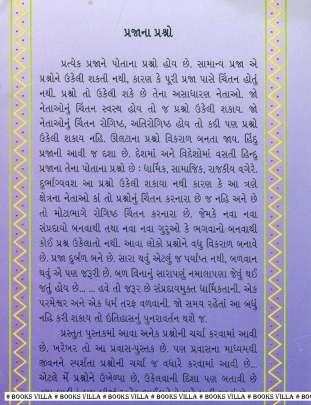 પ્રજાના પ્રશ્નો
પ્રત્યેક પ્રજાને પોતાના પ્રશ્નો હોય છે. સામાન્ય પ્રજા એ
પ્રશ્નોને ઉકેલી શકતી નથી, કારણ કે પૂરી પ્રજા પાસે ચિંતન હોતું
નથી. પ્રશ્નો તો ઉકેલી શકે છે તેના અસાધારણ નેતાઓ. જો
નેતાઓનું ચિંતન સ્વસ્થ હોય તો જ પ્રશ્નો ઉકેલી શકાય. જો
નેતાઓનું ચિંતન રોગિષ્ઠ, અતિરોગિષ્ઠ હોય તો કદી પણ પ્રશ્નો
ઉકેલી શકાય નહિ. ઊલટાના પ્રશ્નો વિકરાળ બનતા જાય. હિંદુ
પ્રજાની આવી જ દશા છે. દેશમાં અને વિદેશોમાં વસતી હિન્દુ
પ્રજાના તેના પોતાના પ્રશ્નો છે : ધાર્મિક, સામાજિક, રાજકીય વગેરે.
દુર્ભાગ્યવશ આ પ્રશ્નો ઉકેલી શકાયા નથી કારણ કે આ ત્રણે
ક્ષેત્રના નેતાઓ કાં તો પ્રશ્નોનું ચિંતન કરનારા છે જ નહિ અને છે
તો મોટાભાગે રોગિષ્ઠ ચિંતન કરનારા છે. જેમકે નવા નવા
સંપ્રદાયો બનવાથી તથા નવા નવા ગુરુઓ કે ભગવાનો બનવાથી
કોઈ પ્રશ્ન ઉકેલાતો નથી. આવા લોકો પ્રશ્નોને વધુ વિકરાળ બનાવે
છે. પ્રજા દુર્બળ બને છે. સારા થવું એટલું જ પર્યાપ્ત નથી, બળવાન
થવું એ પણ જરૂરી છે. બળ વિનાનું સારાપણું નમાલાપણા જેવું થઈ
જતું હોય છે... ... હવે તો જરૂર છે સંપ્રદાયમુક્ત ધાર્મિકતાની. એક
પરમેશ્વર અને એક ધર્મ તરફ વળવાની. જો સમય રહેતાં આ બધું
નહિ કરી શકાય તો ઇતિહાસનું પુનરાવર્તન થશે જ.
પ્રસ્તુત પુસ્તકમાં આવા અનેક પ્રશ્નોની ચર્ચા કરવામાં આવી
છે, ખરેખર તો આ પ્રવાસ-પુસ્તક છે. પણ પ્રવાસના માધ્યમથી
જીવનને સ્પર્શતા પ્રશ્નોની ચર્ચા જ વધારે કરવામાં આવી છે...
એટલે મેં પ્રશ્નોને ઉખેળ્યા છે, ઉકેલવાની દિશા પણ બતાવી છે
# BOOKS VILLA # BOOKS VILLA # BOOKS VILLA # BOOKS VILLA # BOOKS VILLA #